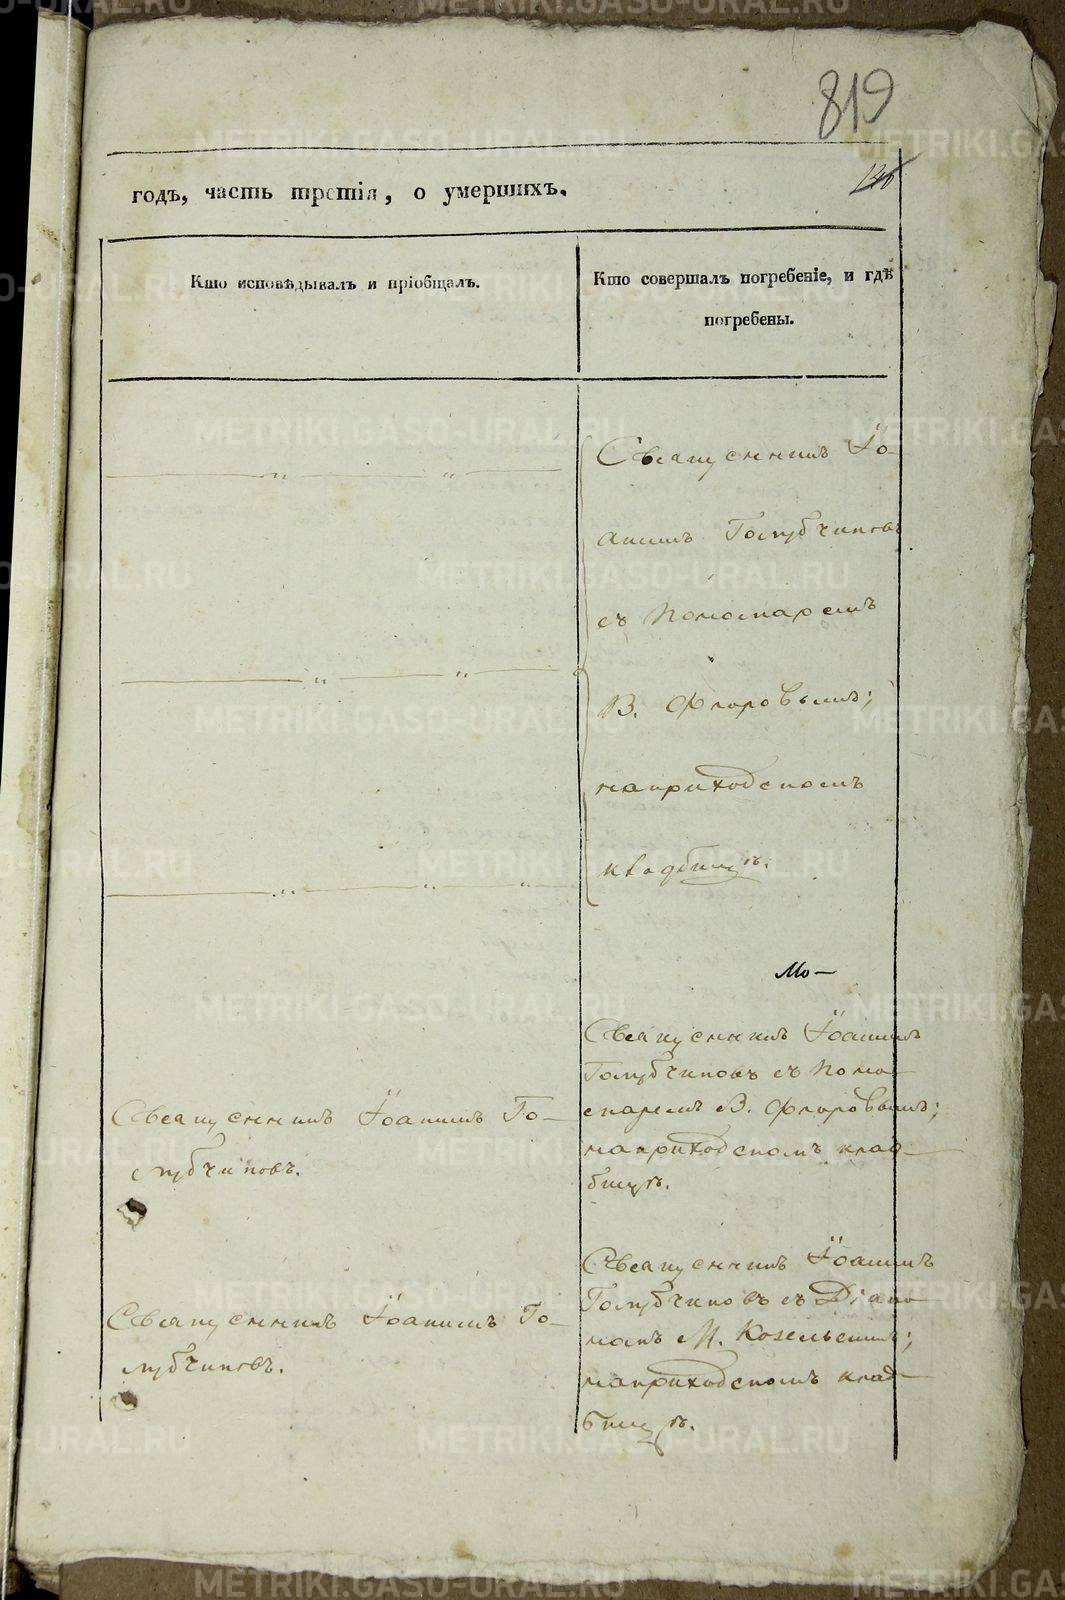 819
годъ, часть третія, о умершихъ.
146
Кто исповѣдывалъ и пріобщалъ.
Кто совершалъ погребеніе, и гдѣ
погребены.
Священникъ Іо-
аннъ Голубчиковъ
съ Пономаремъ
В. Флоровымъ;
на приходскомъ
кладбищѣ.
Священникъ Іоаннъ Го-
лубчиковъ.
Мо-
Священникъ Іоаннъ
Голубчиковъ съ Поно-
маремъ В. Флоровымъ;
на приходскомъ клад-
бищѣ.
Священникъ Іоаннъ Го-
лубчиковъ.
Священникъ Іоаннъ
Голубчиковъ съ Діако-
номъ М. Козельскимъ;
на приходскомъ клад-
бищѣ.
METRIKI.GASO-URAL.RU